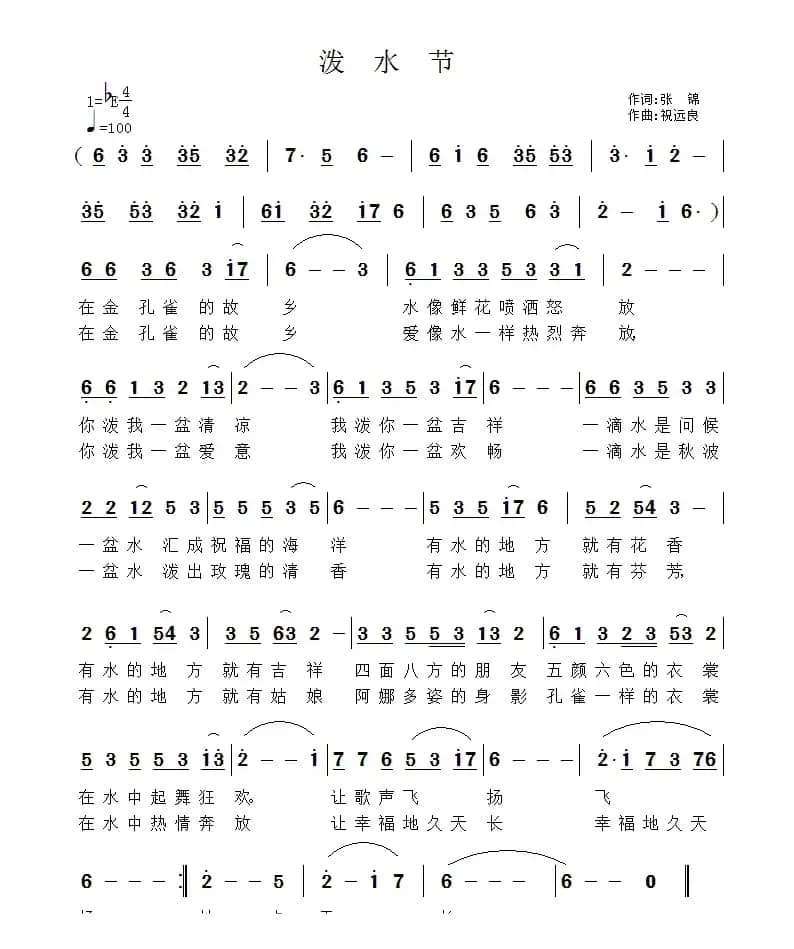 泼 水 节
1=♭E 4/4
♩=100
作词:张 锦
作曲:祝远良
( 6 3 3 35 32 | 7· 5 6 - | 6 1 6 35 53 | 3· 1 2 - |
35 53 32 1 | 61 32 17 6 | 6 3 5 6 3 | 2 - 1 6· ) |
6 6 3 6 3 17 | 6 - - 3 | 6 1 3 3 5 3 3 1 | 2 - - - |
在金 孔雀 的故 乡 水像鲜花喷洒怒 放
在金 孔雀 的故 乡 爱像水一样热烈奔 放,
6 6 1 3 2 13 | 2 - - 3 | 6 1 3 5 3 17 | 6 - - - | 6 6 3 5 3 3
你泼我一盆清 凉 我泼你一盆吉 祥 一滴水是问候
你泼我一盆爱 意 我泼你一盆欢 畅 一滴水是秋波
2 2 12 5 3 | 5 5 5 3 5 | 6 - - - | 5 3 5 17 6 | 5 2 54 3 -
一盆水 汇成祝福的海 洋 有水的地方 就有花香
一盆水 泼出玫瑰的清 香 有水的地方 就有芬芳,
2 6 1 54 3 | 3 5 63 2 - | 3 3 5 5 3 13 2 | 6 1 3 2 3 53 2
有水的地方 就有吉祥 四面八方的朋友 五颜六色的衣裳
有水的地方 就有姑娘 阿娜多姿的身影 孔雀一样的衣裳
5 3 5 5 3 13 | 2 - - 1 | 7 7 6 5 3 17 | 6 - - - | 2· 1 7 3 76 |
在水中起舞狂 欢。 让歌声飞 扬 飞
在水中热情奔 放 让幸福地久天 长 幸福地久天
6 - - - :‖ 2 - - 5 | 2 - 1 7 | 6 - - - | 6 - - 0 ‖